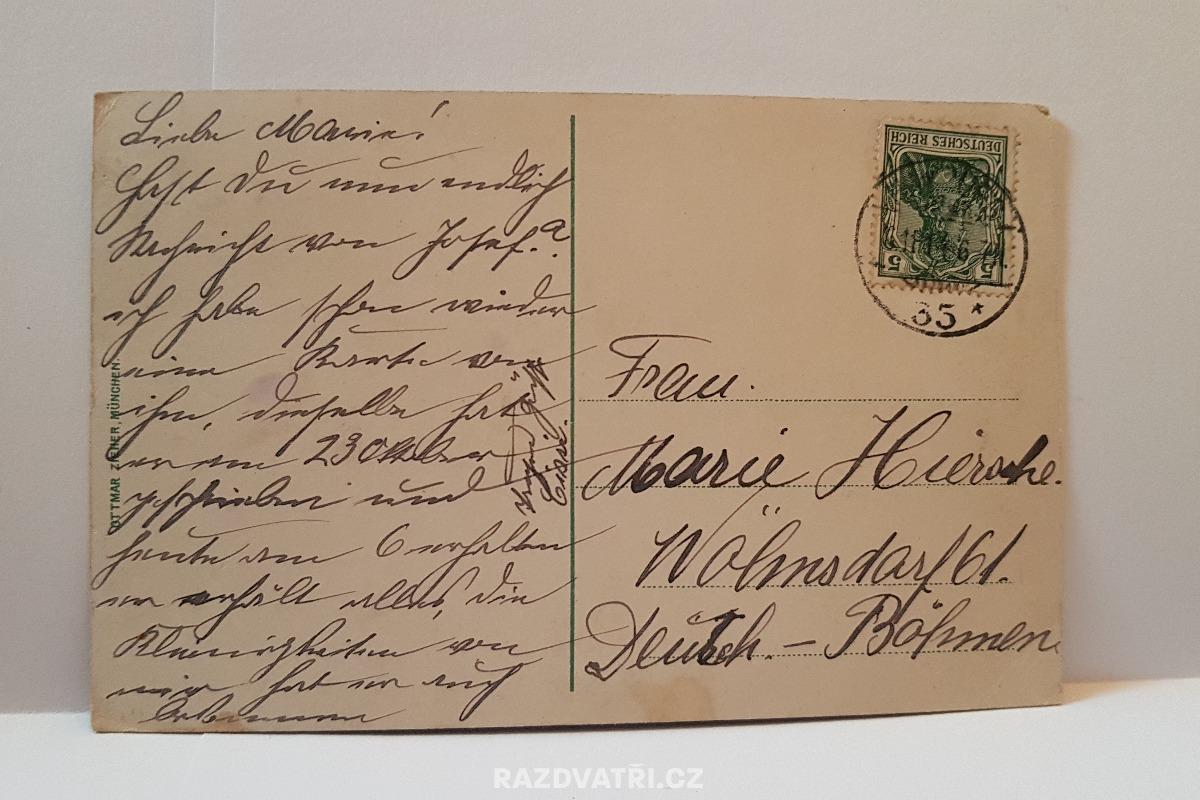 Liebe Marie!
Hast Du nun endlich
Nachricht von Josef?
ich habe schon wieder
eine Karte von
ihm, dieselbe hat
er am 23 Oktober
geschrieben und
heute am 6 erhalten
er erhält alles, die
Kleinigkeiten von
mir hat er auch
bekommen
OTTMAR ZIEHER, MÜNCHEN
DEUTSCHES REICH
5 5
35 *
Frau.
Marie Hiersche.
Wölmsdorf 61.
Deutsch.-Böhmen
RAZDVATŘI.CZ